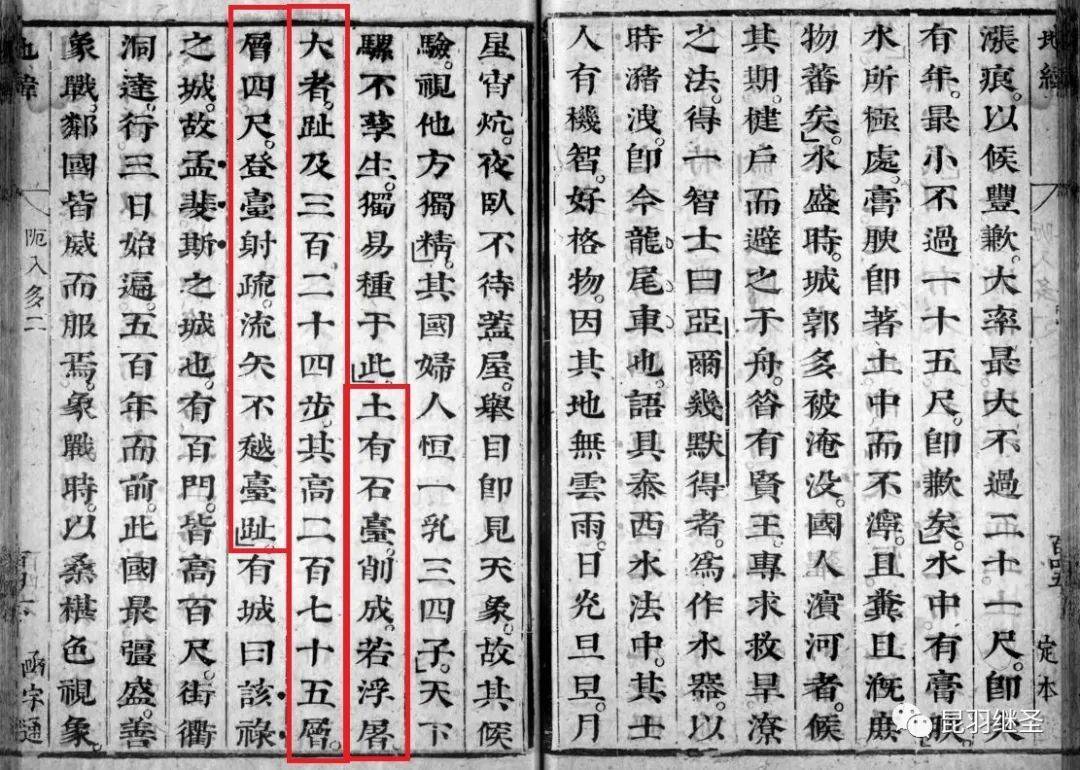 地緯
定本
漲痕。以候豐歉。大率最大不過十一尺。卽大
有年。最小不過一十五尺。卽歉矣。水中有膏腴
水所極處。膏腴卽著土中而不濘。且糞且漑。庶
物蕃矣。水盛時。城郭多被淹没。國人濱河者。候
其期。楗戶而避之于舟。昝有賢王。專求救旱潦
之法。得一智士曰亞爾幾默得者。爲作水器。以
時瀦洩。卽今龍尾車也。語具泰西水法中。其士
人有機智。好格物。因其地無雲雨。日光旦旦。月
星宵炕。夜臥不待蓋屋。舉目卽見天象。故其候
驗。視他方獨精。其國婦人恒一乳三四子。天下
騾不孳生。獨易種于此。土有石臺。削成若浮屠
大者。趾及三百二十四步。其高二百七十五層。
層四尺。登臺射疏。流矢不越臺趾。有城曰該祿
之城。故孟斐斯之城也。有百門。皆高百尺。街衢
洞達。行三日始遍。五百年而前。此國最彊盛。善
象戰。鄰國皆威而服焉。象戰時。以桑椹色視象
地緯
阨入多二
函宇通
昆羽继圣